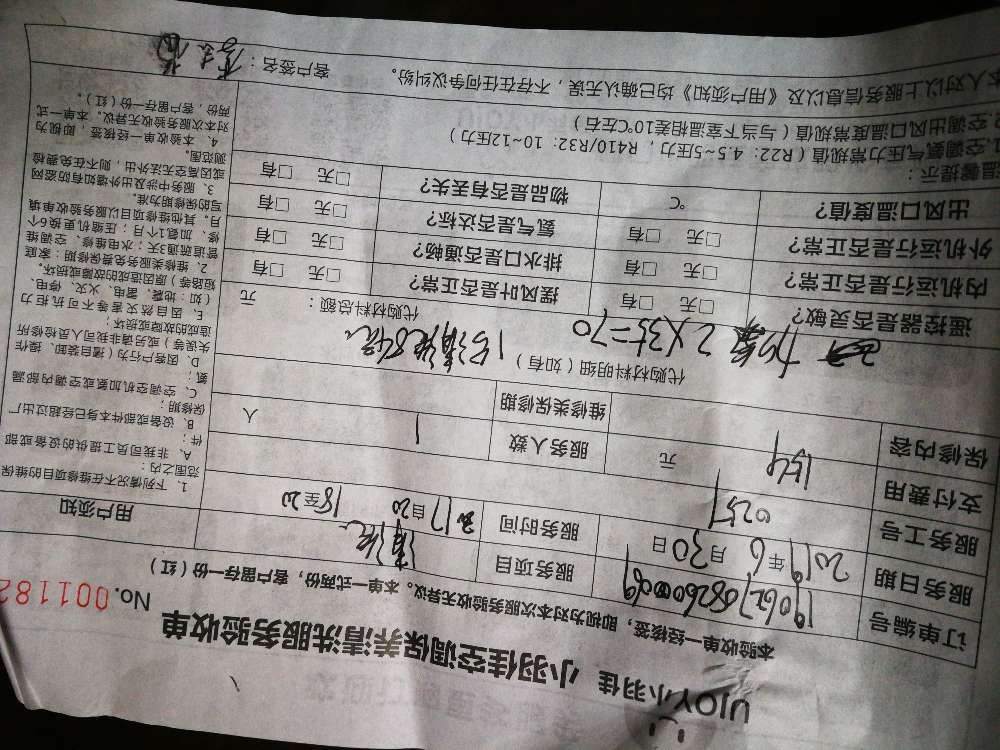 UJOY小羽佳 小羽佳空调保养清洗服务验收单
本验收单一经核签，即视为对本次服务验收无异议。本单一式两份，客户留存一份（红）
No. 001182
订单编号
服务项目 清洗
用户须知
服务日期 2019年6月30日
服务时间 自2017至2018
服务工号 0257
服务人数 1 人
支付费用 154 元
维修类保修期
保修内容
代购材料明细（如有）
加氟 2×35=70
代购材料总额： 元
遥控器是否灵敏？ □无 □有
摆风叶片是否正常？ □无 □有
内机运行是否正常？ □无 □有
排水口是否通畅？ □无 □有
外机运行是否正常？ □无 □有
氨气是否达标？ □无 □有
出风口温度值？ ℃
物品是否有丢失？ □无 □有
1. 下列情况不在维修项目的维保
范围之内：
A、非我司员工提供的设备或部
件；
B、设备或部件本身已经超过出厂
保修期；
C、空调空机加氨或空调内部漏
氨；
D、因客户行为（擅自装卸、操作
失误等）或另请非我司人员检修所
造成的故障或损坏；
E、因自然灾害等不可抗力
（如：地震、雷电、火灾、停电、
短路等）原因造成的故障或损坏。
2、维修类服务免费保修期：家庭
管道疏通3天；水电维修、空调维
修、加氨1个月；压缩机更换6个
月。其他维修项目以服务验收单填
写的保修期为准。
3、服务中涉及出外墙如有防盗网
或因高空无法外出，则不在免费检
测范围。
4、本验收单一经核签，即视为
对本次服务验收无异议。本单一式
两份，客户留存一份（红）。
温馨提示：
1.空调氨气压力常规值（R22：4.5~5压力，R410/R32：10~12压力）
2.空调出风口温度常规值（与当下室温相差10℃左右）
本人对以上服务信息以及《用户须知》均已确认无误，不存在任何争议纠纷。 客户签名：